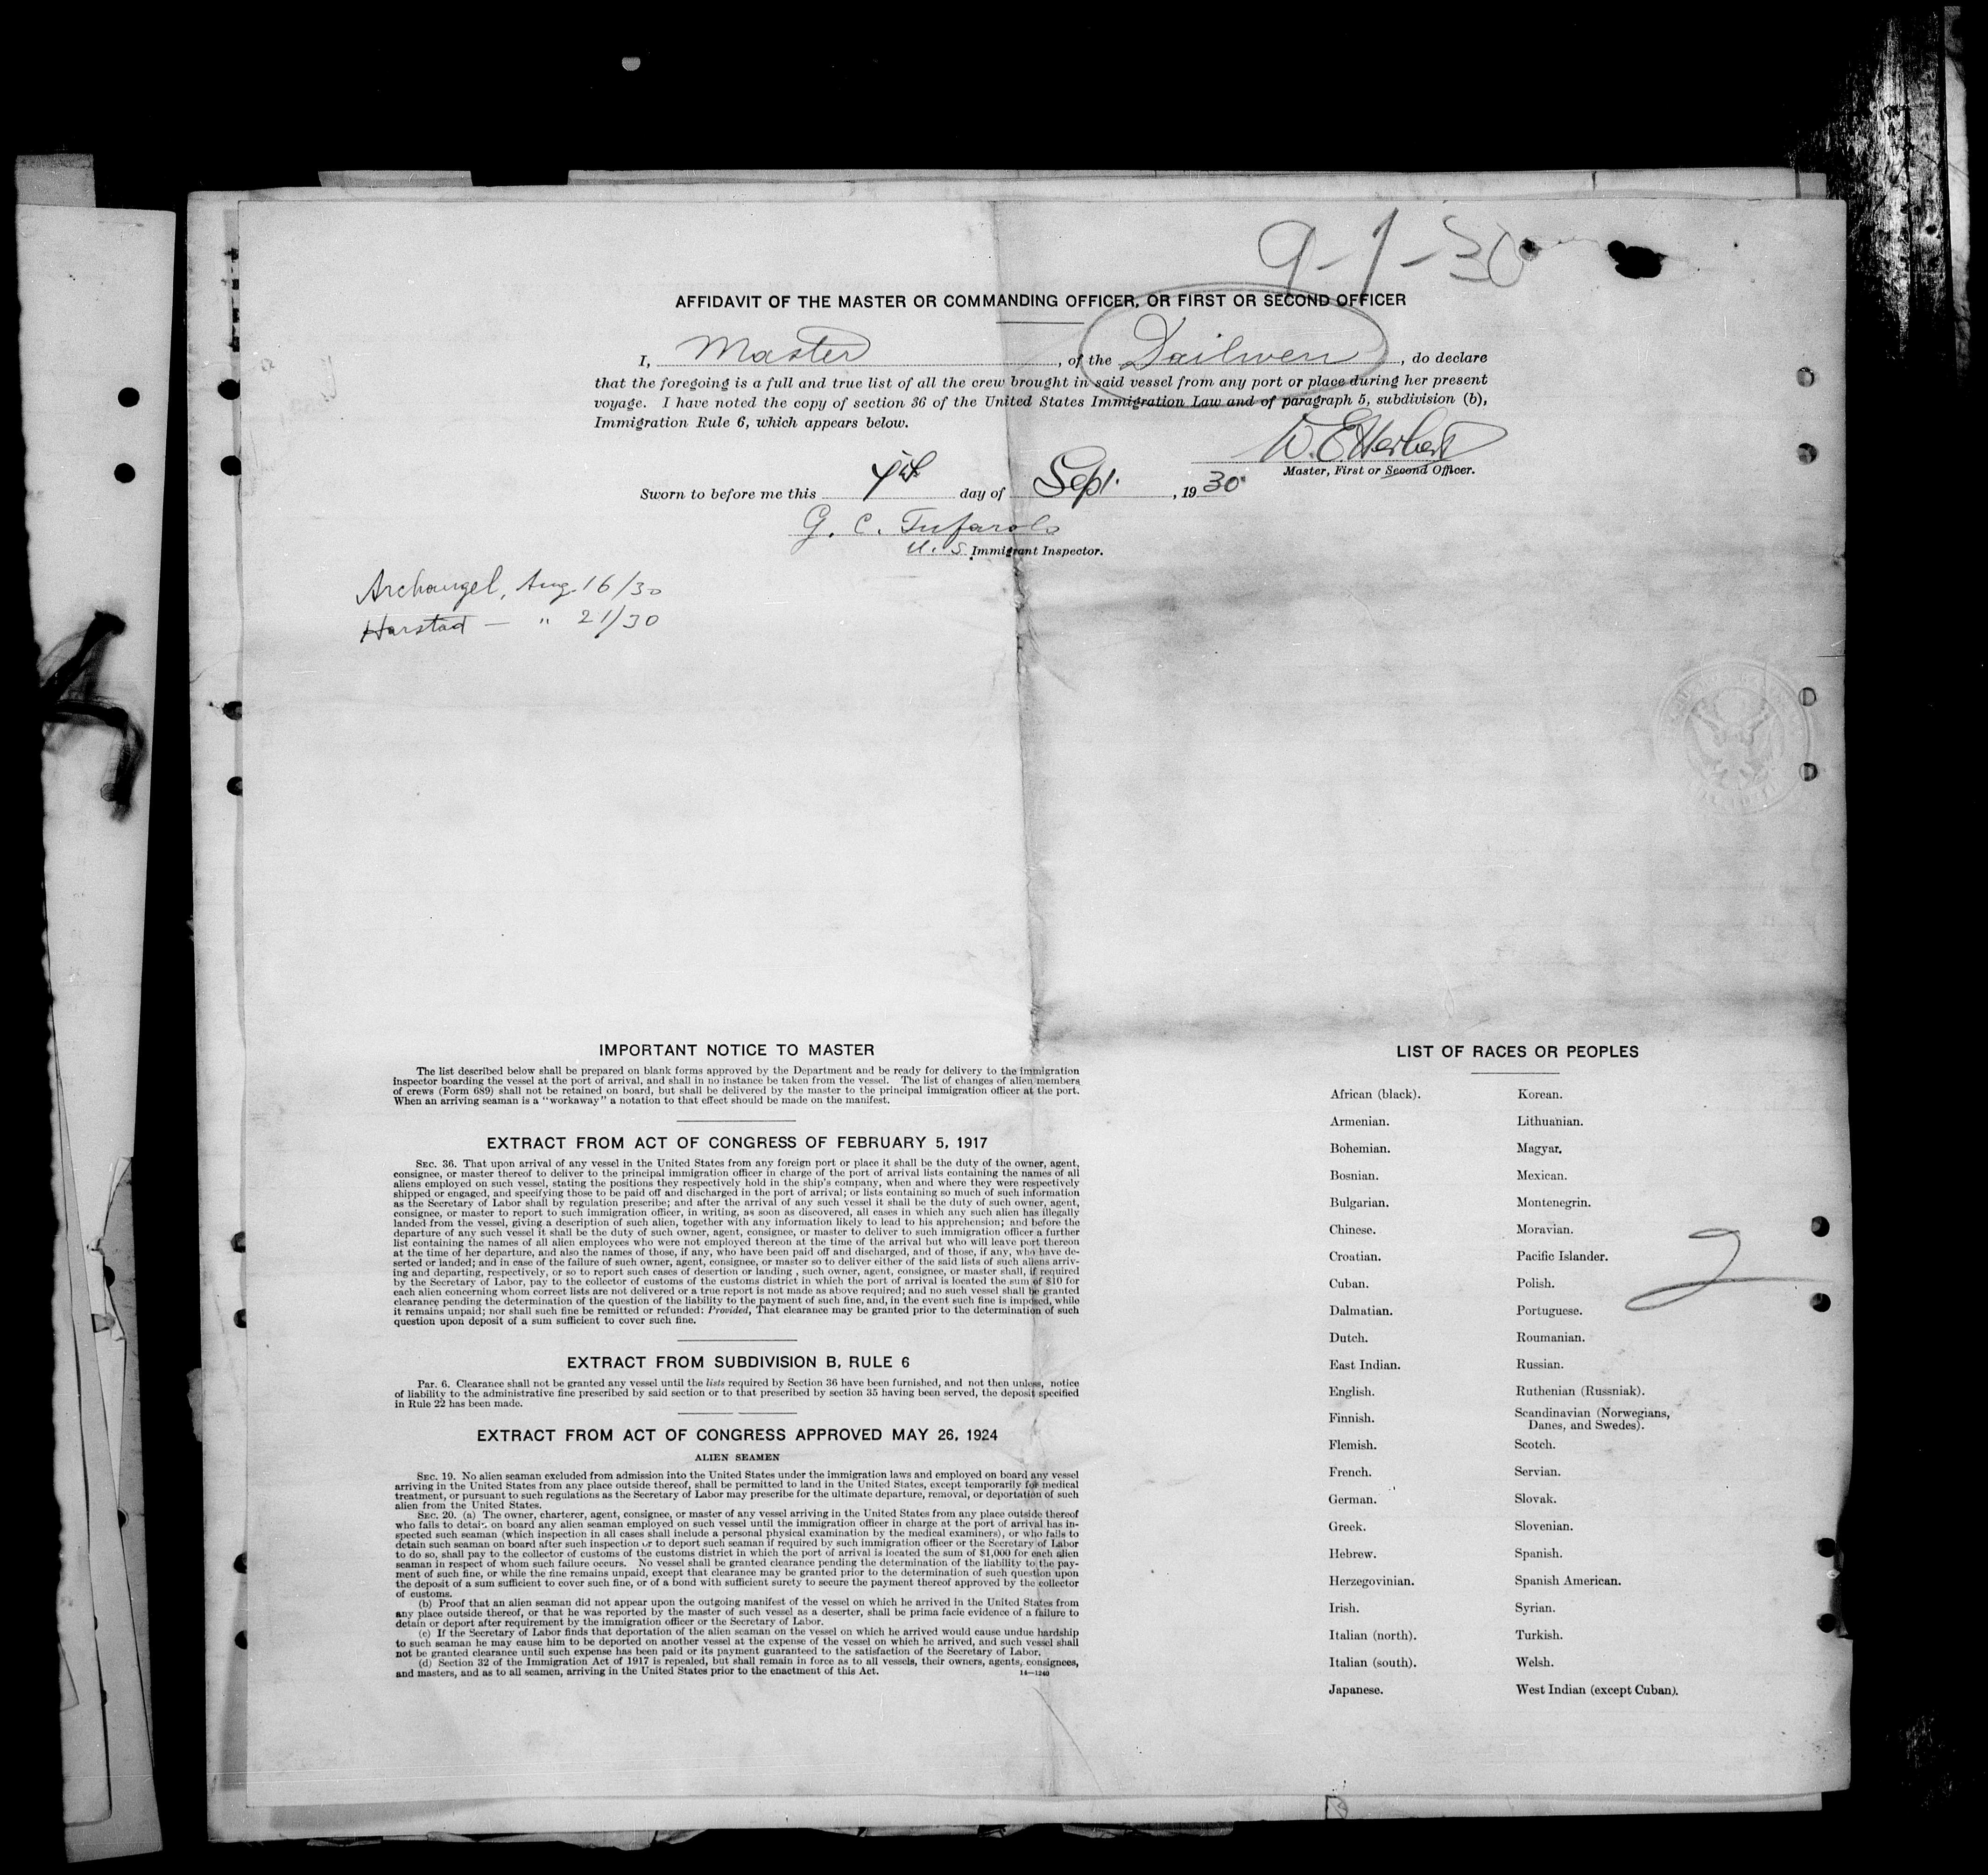 9-1-30
AFFIDAVIT OF THE MASTER OR COMMANDING OFFICER, OR FIRST OR SECOND OFFICER
I, Master, of the Dailwen, do declare
that the foregoing is a full and true list of all the crew brought in said vessel from any port or place during her present
voyage. I have noted the copy of section 36 of the United States Immigration Law and of paragraph 5, subdivision (b),
Immigration Rule 6, which appears below.
W. E. Herbert
Master, First or Second Officer.
Sworn to before me this day of Sept. , 1930
G. C. Tufarolo
U. S. Immigrant Inspector.
Archangel, Aug. 16/30
Harstad — " 21/30
IMPORTANT NOTICE TO MASTER
The list described below shall be prepared on blank forms approved by the Department and be ready for delivery to the immigration
inspector boarding the vessel at the port of arrival, and shall in no instance be taken from the vessel. The list of changes of alien members
of crews (Form 689) shall not be retained on board, but shall be delivered by the master to the principal immigration officer at the port.
When an arriving seaman is a "workaway" a notation to that effect should be made on the manifest.
EXTRACT FROM ACT OF CONGRESS OF FEBRUARY 5, 1917
SEC. 36. That upon arrival of any vessel in the United States from any foreign port or place it shall be the duty of the owner, agent,
consignee, or master thereof to deliver to the principal immigration officer in charge of the port of arrival lists containing the names of all
aliens employed on such vessel, stating the positions they respectively hold in the ship's company, when and where they were respectively
shipped or engaged, and specifying those to be paid off and discharged in the port of arrival; or lists containing so much of such information
as the Secretary of Labor shall by regulation prescribe; and after the arrival of any such vessel it shall be the duty of such owner, agent,
consignee, or master to report to such immigration officer, in writing, as soon as discovered, all cases in which any such alien has illegally
landed from the vessel, giving a description of such alien, together with any information likely to lead to his apprehension; and before the
departure of any such vessel it shall be the duty of such owner, agent, consignee, or master to deliver to such immigration officer a further
list containing the names of all alien employees who were not employed thereon at the time of the arrival but who will leave port thereon
at the time of her departure, and also the names of those, if any, who have been paid off and discharged, and of those, if any, who have de-
serted or landed; and in case of the failure of such owner, agent, consignee, or master so to deliver either of the said lists of such aliens arriv-
ing and departing, respectively, or so to report such cases of desertion or landing , such owner, agent, consignee, or master shall, if required
by the Secretary of Labor, pay to the collector of customs of the customs district in which the port of arrival is located the sum of $10 for
each alien concerning whom correct lists are not delivered or a true report is not made as above required; and no such vessel shall be granted
clearance pending the determination of the question of the liability to the payment of such fine, and, in the event such fine is imposed, while
it remains unpaid; nor shall such fine be remitted or refunded: Provided, That clearance may be granted prior to the determination of such
question upon deposit of a sum sufficient to cover such fine.
EXTRACT FROM SUBDIVISION B, RULE 6
Par. 6. Clearance shall not be granted any vessel until the lists required by Section 36 have been furnished, and not then unless, notice
of liability to the administrative fine prescribed by said section or to that prescribed by section 35 having been served, the deposit specified
in Rule 22 has been made.
EXTRACT FROM ACT OF CONGRESS APPROVED MAY 26, 1924
ALIEN SEAMEN
SEC. 19. No alien seaman excluded from admission into the United States under the immigration laws and employed on board any vessel
arriving in the United States from any place outside thereof, shall be permitted to land in the United States, except temporarily for medical
treatment, or pursuant to such regulations as the Secretary of Labor may prescribe for the ultimate departure, removal, or deportation of such
alien from the United States.
SEC. 20. (a) The owner, charterer, agent, consignee, or master of any vessel arriving in the United States from any place outside thereof
who fails to detain on board any alien seaman employed on such vessel until the immigration officer in charge at the port of arrival has in-
spected such seaman (which inspection in all cases shall include a personal physical examination by the medical examiners), or who fails to
detain such seaman on board after such inspection or to deport such seaman if required by such immigration officer or the Secretary of Labor
to do so, shall pay to the collector of customs of the customs district in which the port of arrival is located the sum of $1,000 for each alien
seaman in respect of whom such failure occurs. No vessel shall be granted clearance pending the determination of the liability to the pay-
ment of such fine, or while the fine remains unpaid, except that clearance may be granted prior to the determination of such question upon
the deposit of a sum sufficient to cover such fine, or of a bond with sufficient surety to secure the payment thereof approved by the collector
of customs.
(b) Proof that an alien seaman did not appear upon the outgoing manifest of the vessel on which he arrived in the United States from
any place outside thereof, or that he was reported by the master of such vessel as a deserter, shall be prima facie evidence of a failure to
detain or deport after requirement by the immigration officer or the Secretary of Labor.
(c) If the Secretary of Labor finds that deportation of the alien seaman on the vessel on which he arrived would cause undue hardship
to such seaman he may cause him to be deported on another vessel at the expense of the vessel on which he arrived, and such vessel shall
not be granted clearance until such expense has been paid or its payment guaranteed to the satisfaction of the Secretary of Labor.
(d) Section 32 of the Immigration Act of 1917 is repealed, but shall remain in force as to all vessels, their owners, agents, consignees,
and masters, and as to all seamen, arriving in the United States prior to the enactment of this Act. 14—1240
LIST OF RACES OR PEOPLES
African (black).
Armenian.
Bohemian.
Bosnian.
Bulgarian.
Chinese.
Croatian.
Cuban.
Dalmatian.
Dutch.
East Indian.
English.
Finnish.
Flemish.
French.
German.
Greek.
Hebrew.
Herzegovinian.
Irish.
Italian (north).
Italian (south).
Japanese.
Korean.
Lithuanian.
Magyar.
Mexican.
Montenegrin.
Moravian.
Pacific Islander.
Polish.
Portuguese.
Roumanian.
Russian.
Ruthenian (Russniak).
Scandinavian (Norwegians,
Danes, and Swedes).
Scotch.
Servian.
Slovak.
Slovenian.
Spanish.
Spanish American.
Syrian.
Turkish.
Welsh.
West Indian (except Cuban).
2